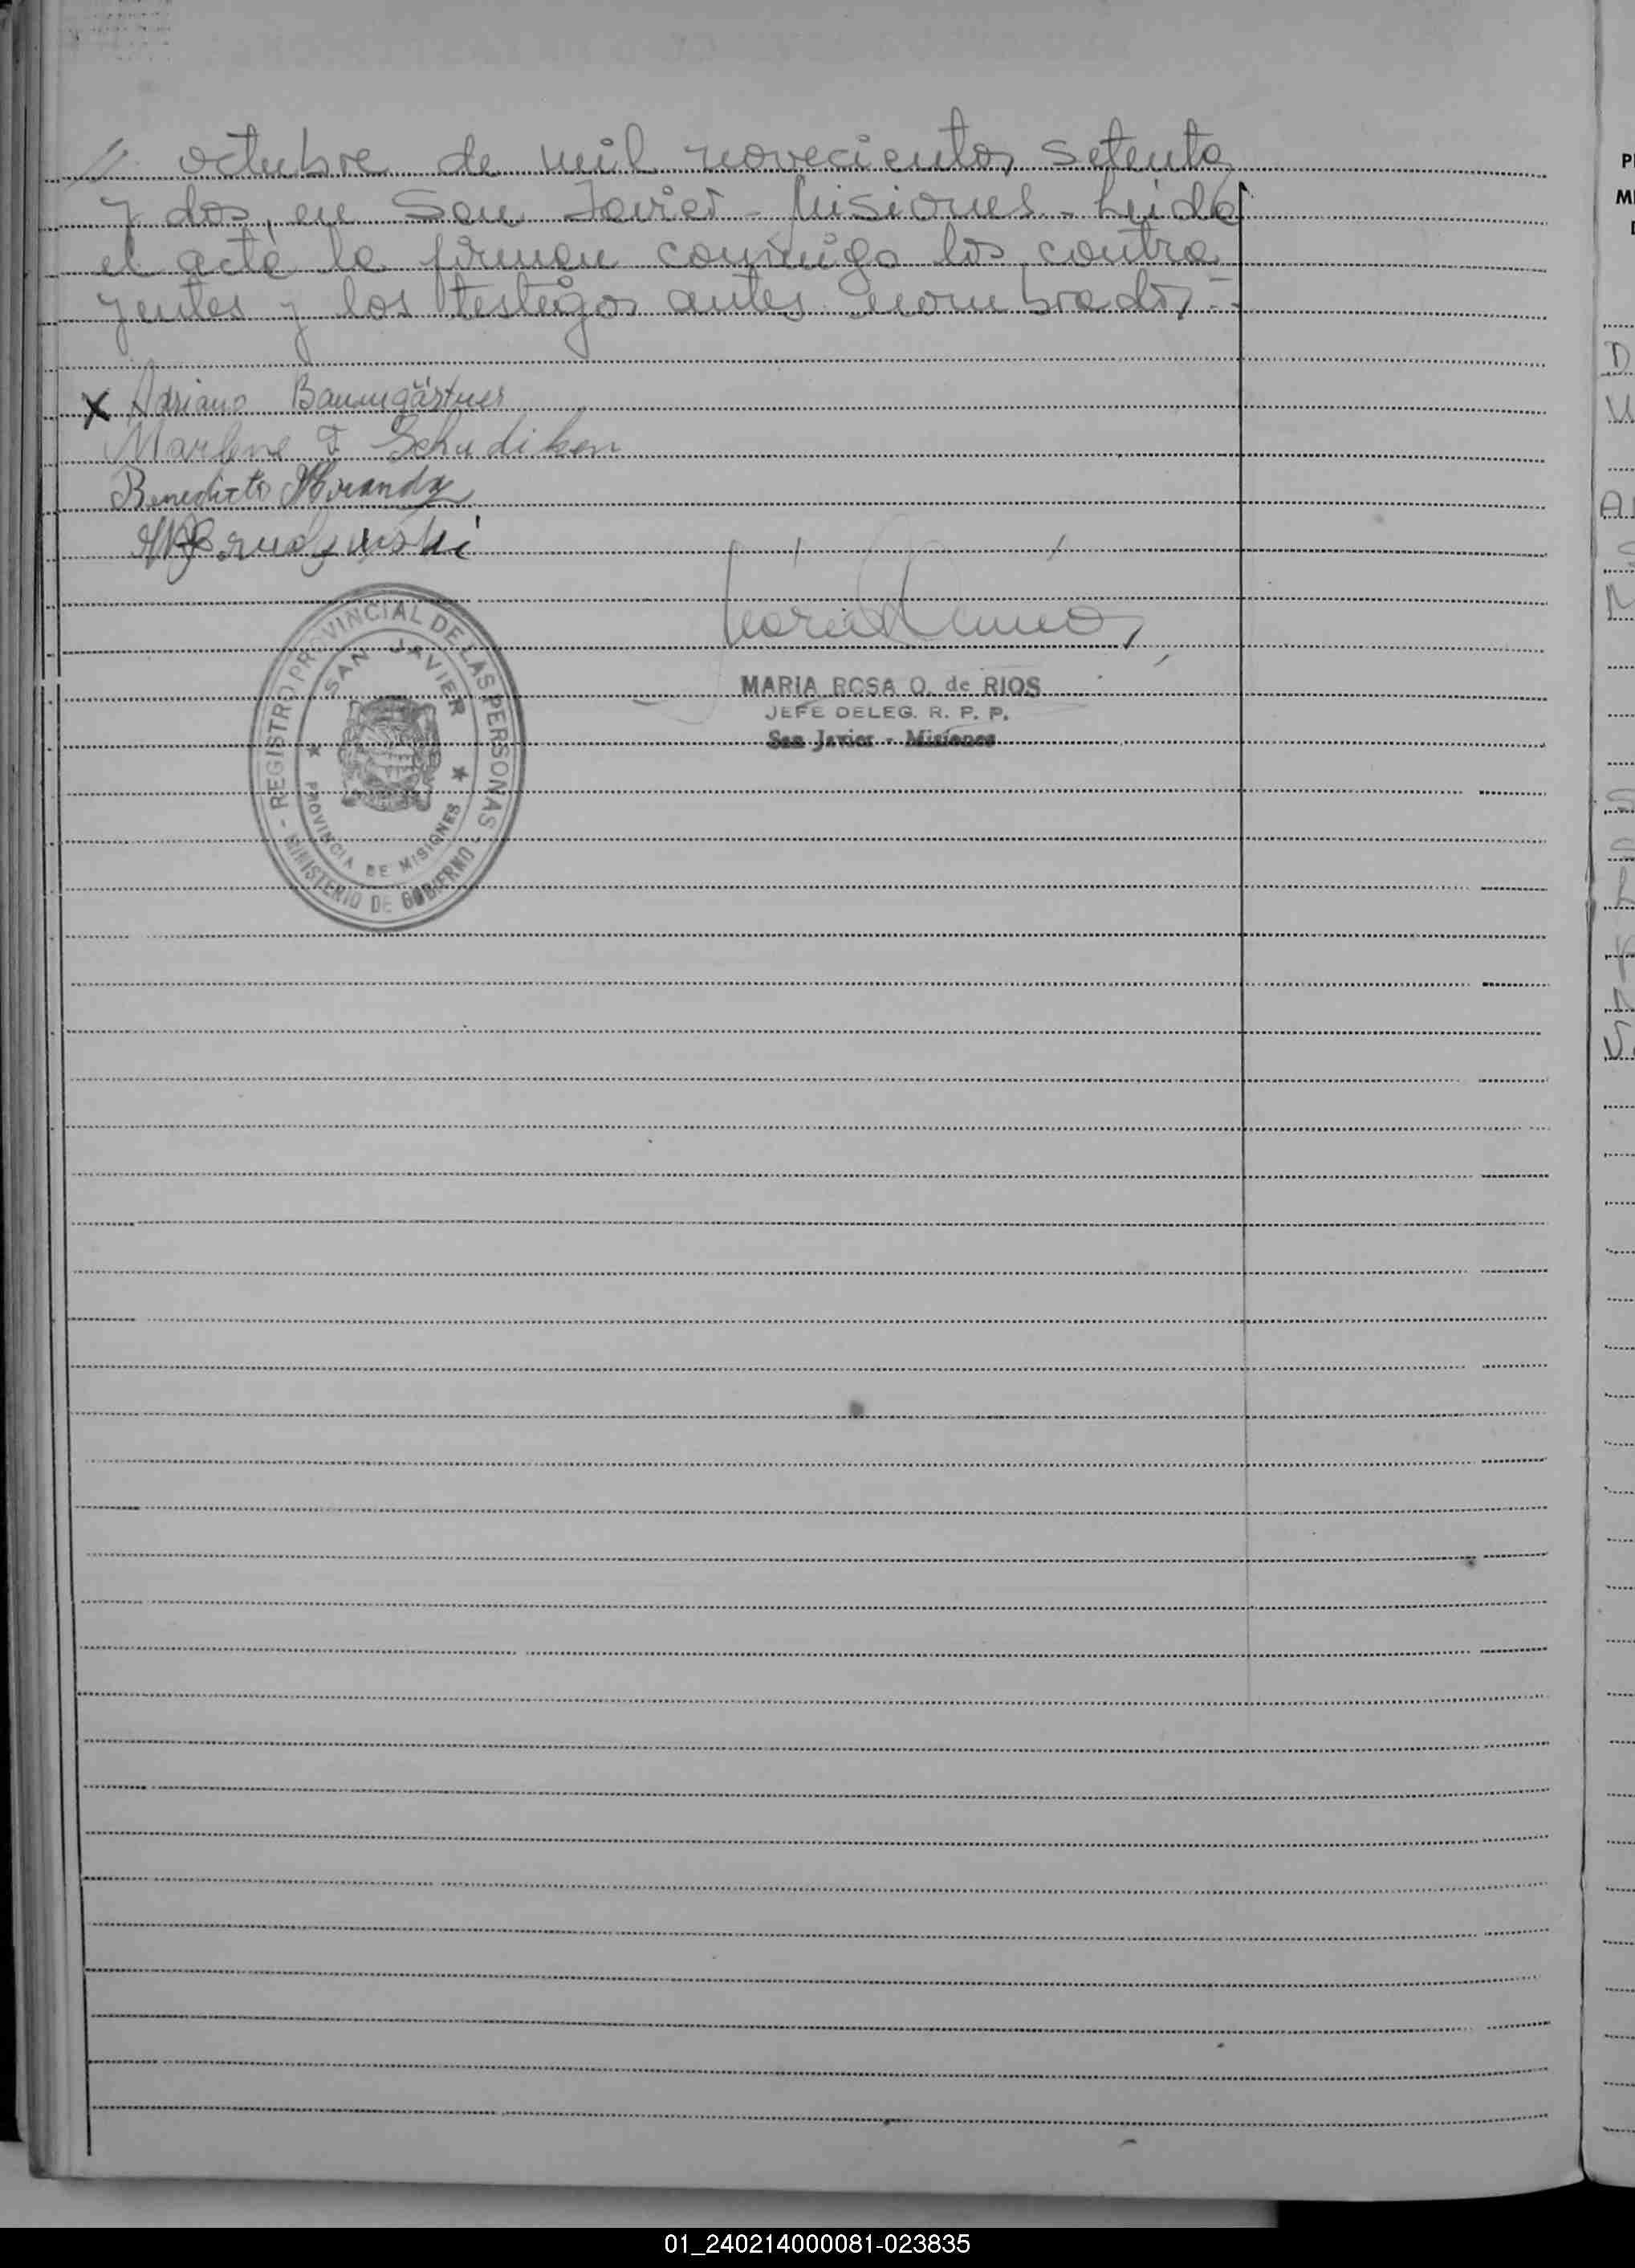 // octubre de mil novecientos setenta
y dos, en San Javier - Misiones - Leida
el acta la firman conmigo los contra
yentes y los testigos antes nombrados.-
X Adriano Baumgärtner
Marlene F Schudiken
Benedicto Miranda
REGISTRO PROVINCIAL DE LAS PERSONAS
SAN JAVIER
PROVINCIA DE MISIONES
- MINISTERIO DE GOBIERNO -
MARIA ROSA O. de RIOS
JEFE DELEG. R. P. P.
San Javier - Misiones
01_240214000081-023835